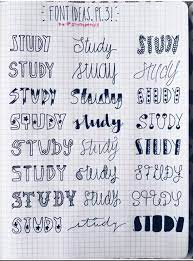 FONT IDEAS, PT. 3!
STUDY Study STUDY
STUDY study Study
STUDY Study STUDY
STUDY study study
STUDY Study STUDY
STUDY Study STUDY
STUDY Study STUDY
STUDY study STUDY